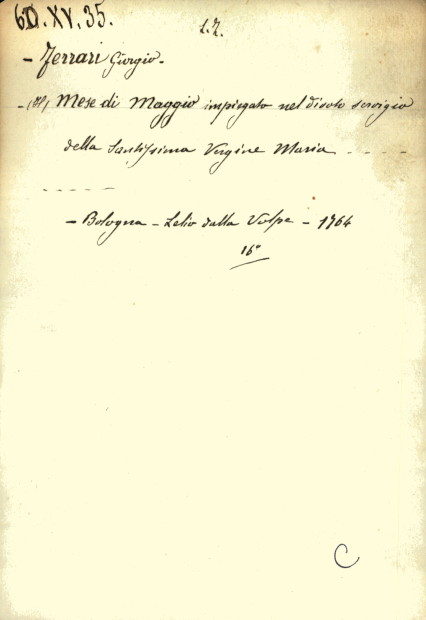 6D.XV.35.
- Ferrari Giorgio.
- (Il) Mese di Maggio impiegato nel divoto servigio
della Santissima Vergine Maria - - - -
- - - - -
- Bologna - Lelio dalla Volpe - 1764
16°
C